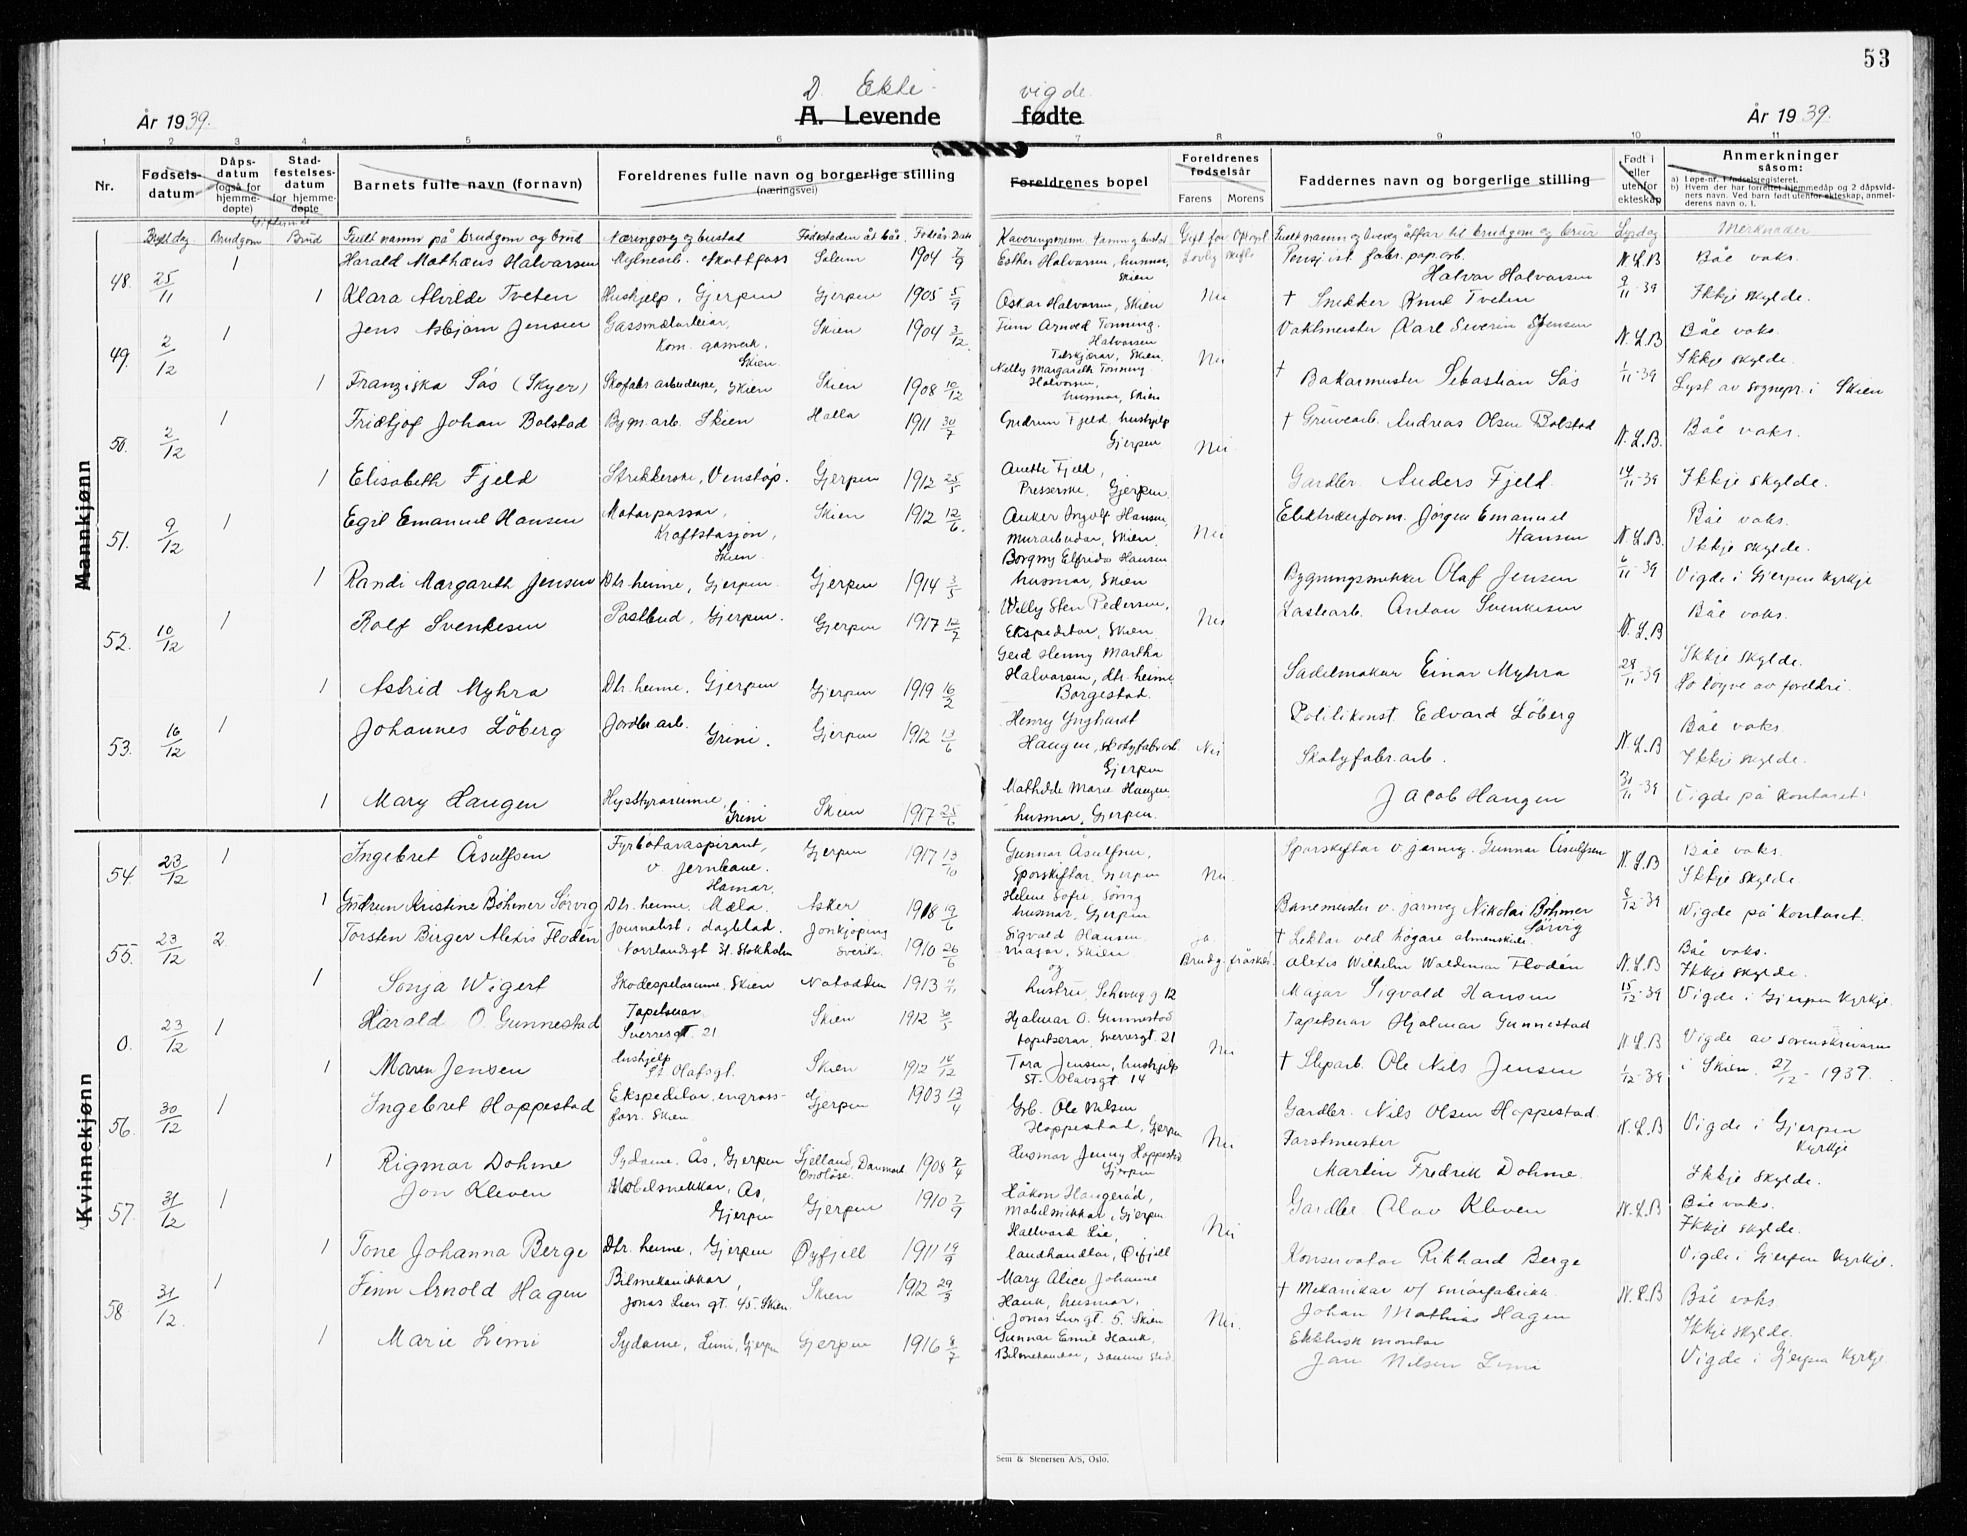 53
D. Ekte- vigde.
År 1939. A. Levende fødte År 1939.
1 2 3 4 5 6 7 8 9 10 11
Nr.
Fødsels-datum
Dåps-datum (også for hjemme-døpte)
Stad-festelses-datum for hjemme-døpte
Barnets fulle navn (fornavn)
Foreldrenes fulle navn og borgerlige stilling (næringsvei)
Foreldrenes bopel
Foreldrenes fødselsår
Farens Morens
Faddernes navn og borgerlige stilling
Født i eller utenfor ekteskap
Anmerkninger såsom:
a) Løpe-nr. i fødselsregisteret.
b) Hvem der har forrettet hjemmedåp og 2 dåpsvidners navn. Ved barn født utenfor ekteskap, anmelderens navn o. l.
Brudgom Brud Fullt namn på brudgom og brud Næringsveg og bustad Fødestaden åt båe Fødeår Dato
Lysdag Merknader
Mannkjønn
48. 25/11 1 Harald Mathæus Halvarsen Mølnearb. Skotfoss Solum 1904 7/9 Esther Halvarsen, husmor, Skien Pensjonist fabr. pap.arb. Halvor Halvorsen N.L.B Båe vaks.
1 Klara Alvilde Tveten Hushjelp, Gjerpen Gjerpen 1905 5/9 Oskar Halvarsen, Skien Nei † Snekker Knut Tveten 9/11-39 Ikkje skylde.
49. 2/12 1 Jens Asbjørn Jensen Gassmælarleiar, Kom. gasverk, Skien Skien 1904 3/12 Finn Arnold Tonning Halvorsen Tilskjærar, Skien Nei Vaktmeister Karl Severin Jensen N.L.B Båe vaks.
1 Franziska Sås (Skyer) Skofabr. arbeiderske, Skien Skien 1908 10/12 Nelly Margareth Tonning Halvorsen, husmor, Skien † Bakarmeister Sebastian Sås 1/11-39 Ikkje skylde. Lyst av sognepr. i Skien
50. 2/12 1 Fridtjof Johan Bolstad Bygn. arb. Skien Halla 1911 30/7 Gudrun Fjeld, hushjelp Gjerpen Nei † Gruvearb. Andreas Olsen Bolstad N.L.B. Båe vaks.
1 Elisabeth Fjeld Strikkerske, Venstøp. Gjerpen 1912 25/5 Anette Fjeld, Presserske, Gjerpen Gardbr. Anders Fjeld. 14/11-39 Ikkje skylde.
51. 9/12 1 Egil Emanuel Hansen Motorpassar, Kraftstasjon, Skien Skien 1912 12/6. Anker Ingolf Hansen, Murarbeidar, Skien Nei Elektrikerform. Jörgen Emanuel Hansen N.L.B. Båe vaks. Ikkje skylde.
1 Randi Margareth Jensen Dtr. heime, Gjerpen. Gjerpen 1914 3/5 Borgny Elfrida Hansen husmor, Skien Bygningssnikker Olaf Jensen 6/11-39 Vigde i Gjerpen Kyrkje
52. 10/12 1 Rolf Svenkesen Postbud, Gjerpen. Gjerpen 1917 12/7 Willy Sten Pedersen, Ekspeditør, Skien Nei Lastearb. Anton Svenkesen N.L.B Båe vaks.
1 Astrid Myhra Dtr. heime, Gjerpen Gjerpen 1919 16/2 Gerd Henny Martha Halvorsen, dtr. heime Borgestad. Sadelmakar Einar Myhra 28/11-39 Ikkje skylde. Ho løyve av foreldri.
53. 16/12 1 Johannes Löberg Jordbr. arb. Grini. Gjerpen 1912 13/6 Henry Ynghardt Haugen, skotyfabr.arb. Gjerpen Nei Politikonst. Edvard Löberg N.L.B Båe vaks. Ikkje skylde.
1 Mary Haugen Hysstyrarinne, Grini Skien 1917 25/6 Mathilde Marie Haugen, husmor, Gjerpen. Skotyfabr.arb. Jacob Haugen 21/11-39 Vigde på kontoret.
Kvinnekjønn
54. 23/12 1 Ingebret Åsulfsen Fyrbøtaraspirant, v. jernbane. Hamar. Gjerpen 1917 13/10 Gunnar Åsulfsen, Sporskiftar, Gjerpen Nei. Sporskiftar v. jarnveg. Gunnar Åsulfsen N.L.B Båe vaks. Ikkje skylde.
1 Gudrun Kristine Böhmer Sörvig Dtr. heime. Mæla. Asker 1918 19/6 Helene Sofie Sörvig husmor, Gjerpen Banemeister v. jarnveg Nikolai Böhmer Sörvig 8/12-39 Vigde på kontoret.
55. 23/12 2. Torsten Birger Alexis Flodén Journalist i dagblad. Norrlandsgt. 31. Stokholm Jönkjöping Sverike 1910 26/6 Sigvald Hansen major, Skien ja. Brudg. fråskild. † Lektor ved högare almenskule Alexis Wilhelm Waldemar Flodén N.L.B Båe vaks. Ikkje skylde.
1 Sonja Wigert Skodespelarinne. Skien Notodden 1913 og hustru, Schweig. g 12 Major Sigvald Hansen 15/12-39 Vigde i Gjerpen Kyrkje.
0. 23/12 1 Harald O. Gunnestad Tapetserar Sverresgt. 21 Skien 1912 30/5 Hjalmar O. Gunnestad tapetserar, Sverresgt. 21 Nei Tapetserar Hjalmar Gunnestad N.L.B Vigde av sorenskrivaren
1 Maren Jensen Hushjelp St. Olafsgt. Skien 1912 14/12 Tora Jensen, hushjelp St. Olavsgt 14 † Sliparb. Ole Nils Jensen 1/12-39 i Skien. 27/12-1939.
56. 30/12 1 Ingebret Hoppestad Ekspeditør, engross-forr. Skien Gjerpen 1903 13/4 Grb. Ole Nilsen Hoppestad, Gjerpen Nei Gardbr. Nils Olsen Hoppestad N.L.B Vigde i Gjerpen Kyrkje
1 Rigmor Dohme Sydame, Ås, Gjerpen Sjelland, Danmark 1908 7/4 Husmor Jenny Hoppestad Gjerpen Forstmeister Martin Fredrik Dohme. Ikkje skylde.
57. 31/12 1 Jon Kleven Mobelsnekkar, Ås, Gjerpen Gjerpen 1910 2/9 Håkon Haugerød, Mobelsnikkar, Gjerpen Nei Gardbr. Olav Kleven N.L.B Båe vaks. Ikkje skylde.
1 Tone Johanna Berge Dtr. heime, Gjerpen Øyfjell 1911 19/9 Hallvard Lie, landhandlar, Øifjell Konservator Rikhard Berge Vigde i Gjerpen Kyrkje.
58 31/12. 1 Finn Arnold Hagen Bilmekanikkar, Jonas Lies gt. 45. Skien. Skien 1912 29/3 Mary Alice Johanne Hauk, husmor, Jonas Liesgt. 5. Skien Nei. † Mekanikar v/ smörfabrikk. Johan Mathias Hagen N.L.B Båe vaks
1 Marie Limi Sydame, Limi, Gjerpen Gjerpen 1916 8/7 Gunnar Emil Hauk, Bilmekanikar, samme stad Elektrisk montør Jan Nilsen Limi Ikkje skylde. Vigde i Gjerpen Kyrkje
Sem & Stenersen A/S, Oslo.